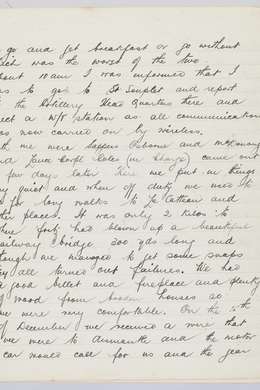 go and get breakfast or go without
ich was the worst of the two
bout 10 am I was informed that I
as to go to St Souplet and report
the Artillery Head Quarters there and
ect a W/T station as all communication
as now carried on by wireless.
th me were Sappers Osborne and McKinnon
nd Lance Corpl (in charge) came out
few days later. Here we put in things
y quiet and when off duty we used to
for long walks to Le Cateau and
ther places. It was only 2 kilos to
had blown up a beautiful
ailway bridge 200 yds long and
tough we managed to get some snaps
ey all turned out failures. We had
good billet and fireplace and plenty
wood from broken houses so
were very comfortable. On the
December we received a wire that
we were to dismantle and the motor
car would call for us and the gear